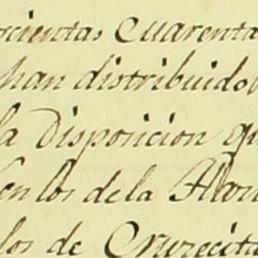 rcientas cuarenta
han distribuido
la Disposicion qu
en los de la Har
los de Cruzecita